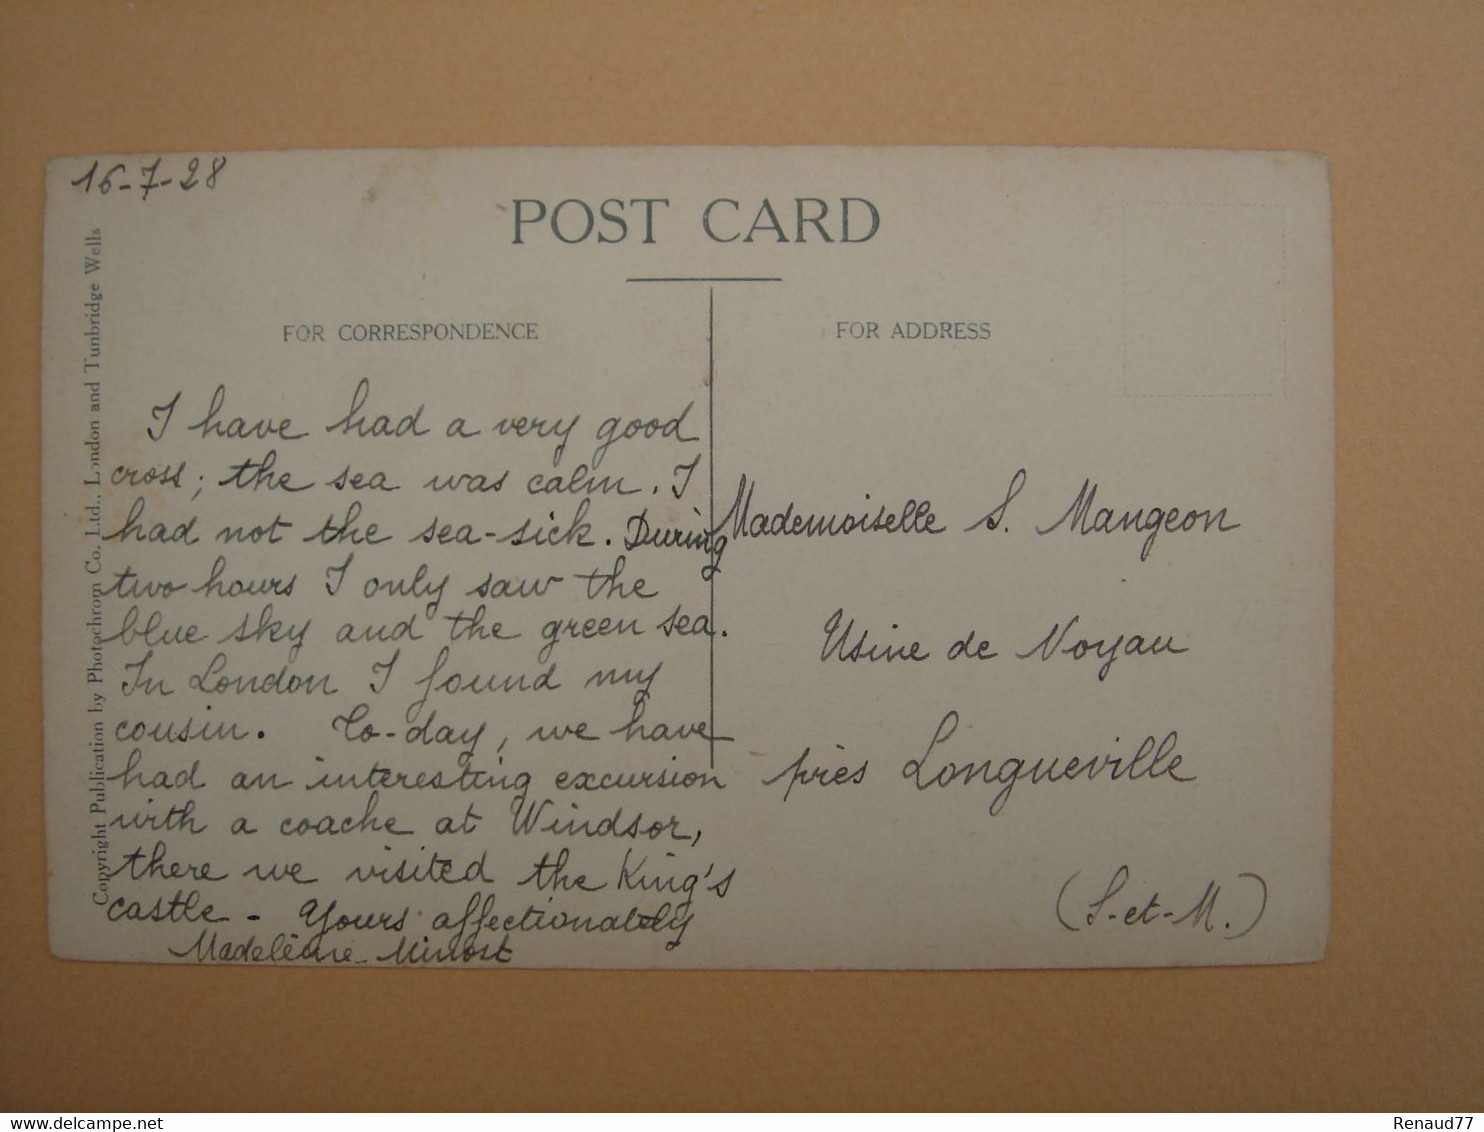 16-7-28
POST CARD
FOR CORRESPONDENCE
FOR ADDRESS
Copyright Publication by Photochrom Co. Ltd., London and Tunbridge Wells
I have had a very good
cross; the sea was calm. I
had not the sea-sick. During
two hours I only saw the
blue sky and the green sea.
In London I found my
cousin. To-day, we have
had an interesting excursion
with a coache at Windsor,
there we visited the King's
castle - Yours affectionately
Madeleine Minost
Mademoiselle S. Mangeon
Usine de Noyau
près Longueville
(S.-et-M.)
delcampe.net
Renaud77